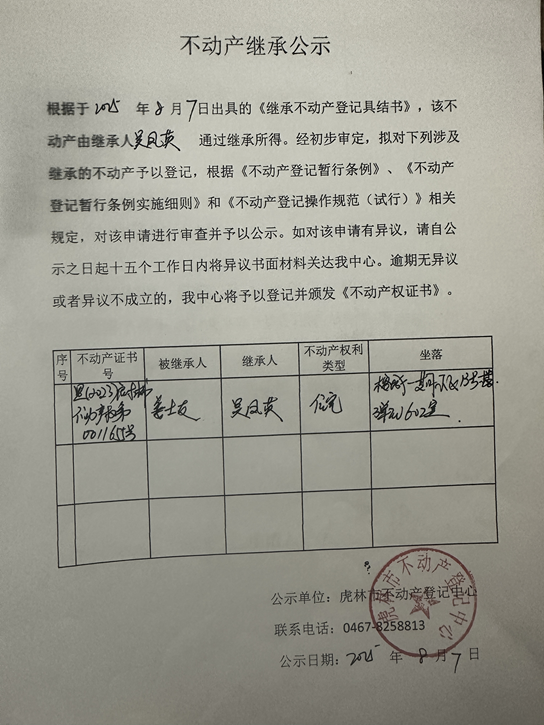 不动产继承公示
根据于2025 年 8 月 7日出具的《继承不动产登记具结书》，该不
动产由继承人吴凤英 通过继承所得。经初步审定，拟对下列涉及
继承的不动产予以登记，根据《不动产登记暂行条例》、《不动产
登记暂行条例实施细则》和《不动产登记操作规范（试行）》相关
规定，对该申请进行审查并予以公示。如对该申请有异议，请自公
示之日起十五个工作日内将异议书面材料关达我中心。逾期无异议
或者异议不成立的，我中心将予以登记并颁发《不动产权证书》。
序号 不动产证书号 被继承人 继承人 不动产权利类型 坐落
黑(2023)虎林市
不动产权第
0011655号
姜士友 吴凤英 住宅
602室
公示单位：虎林市不动产登记中心
联系电话：0467-8258813
公示日期：2025 年 8 月 7 日
虎林市不动产登记中心